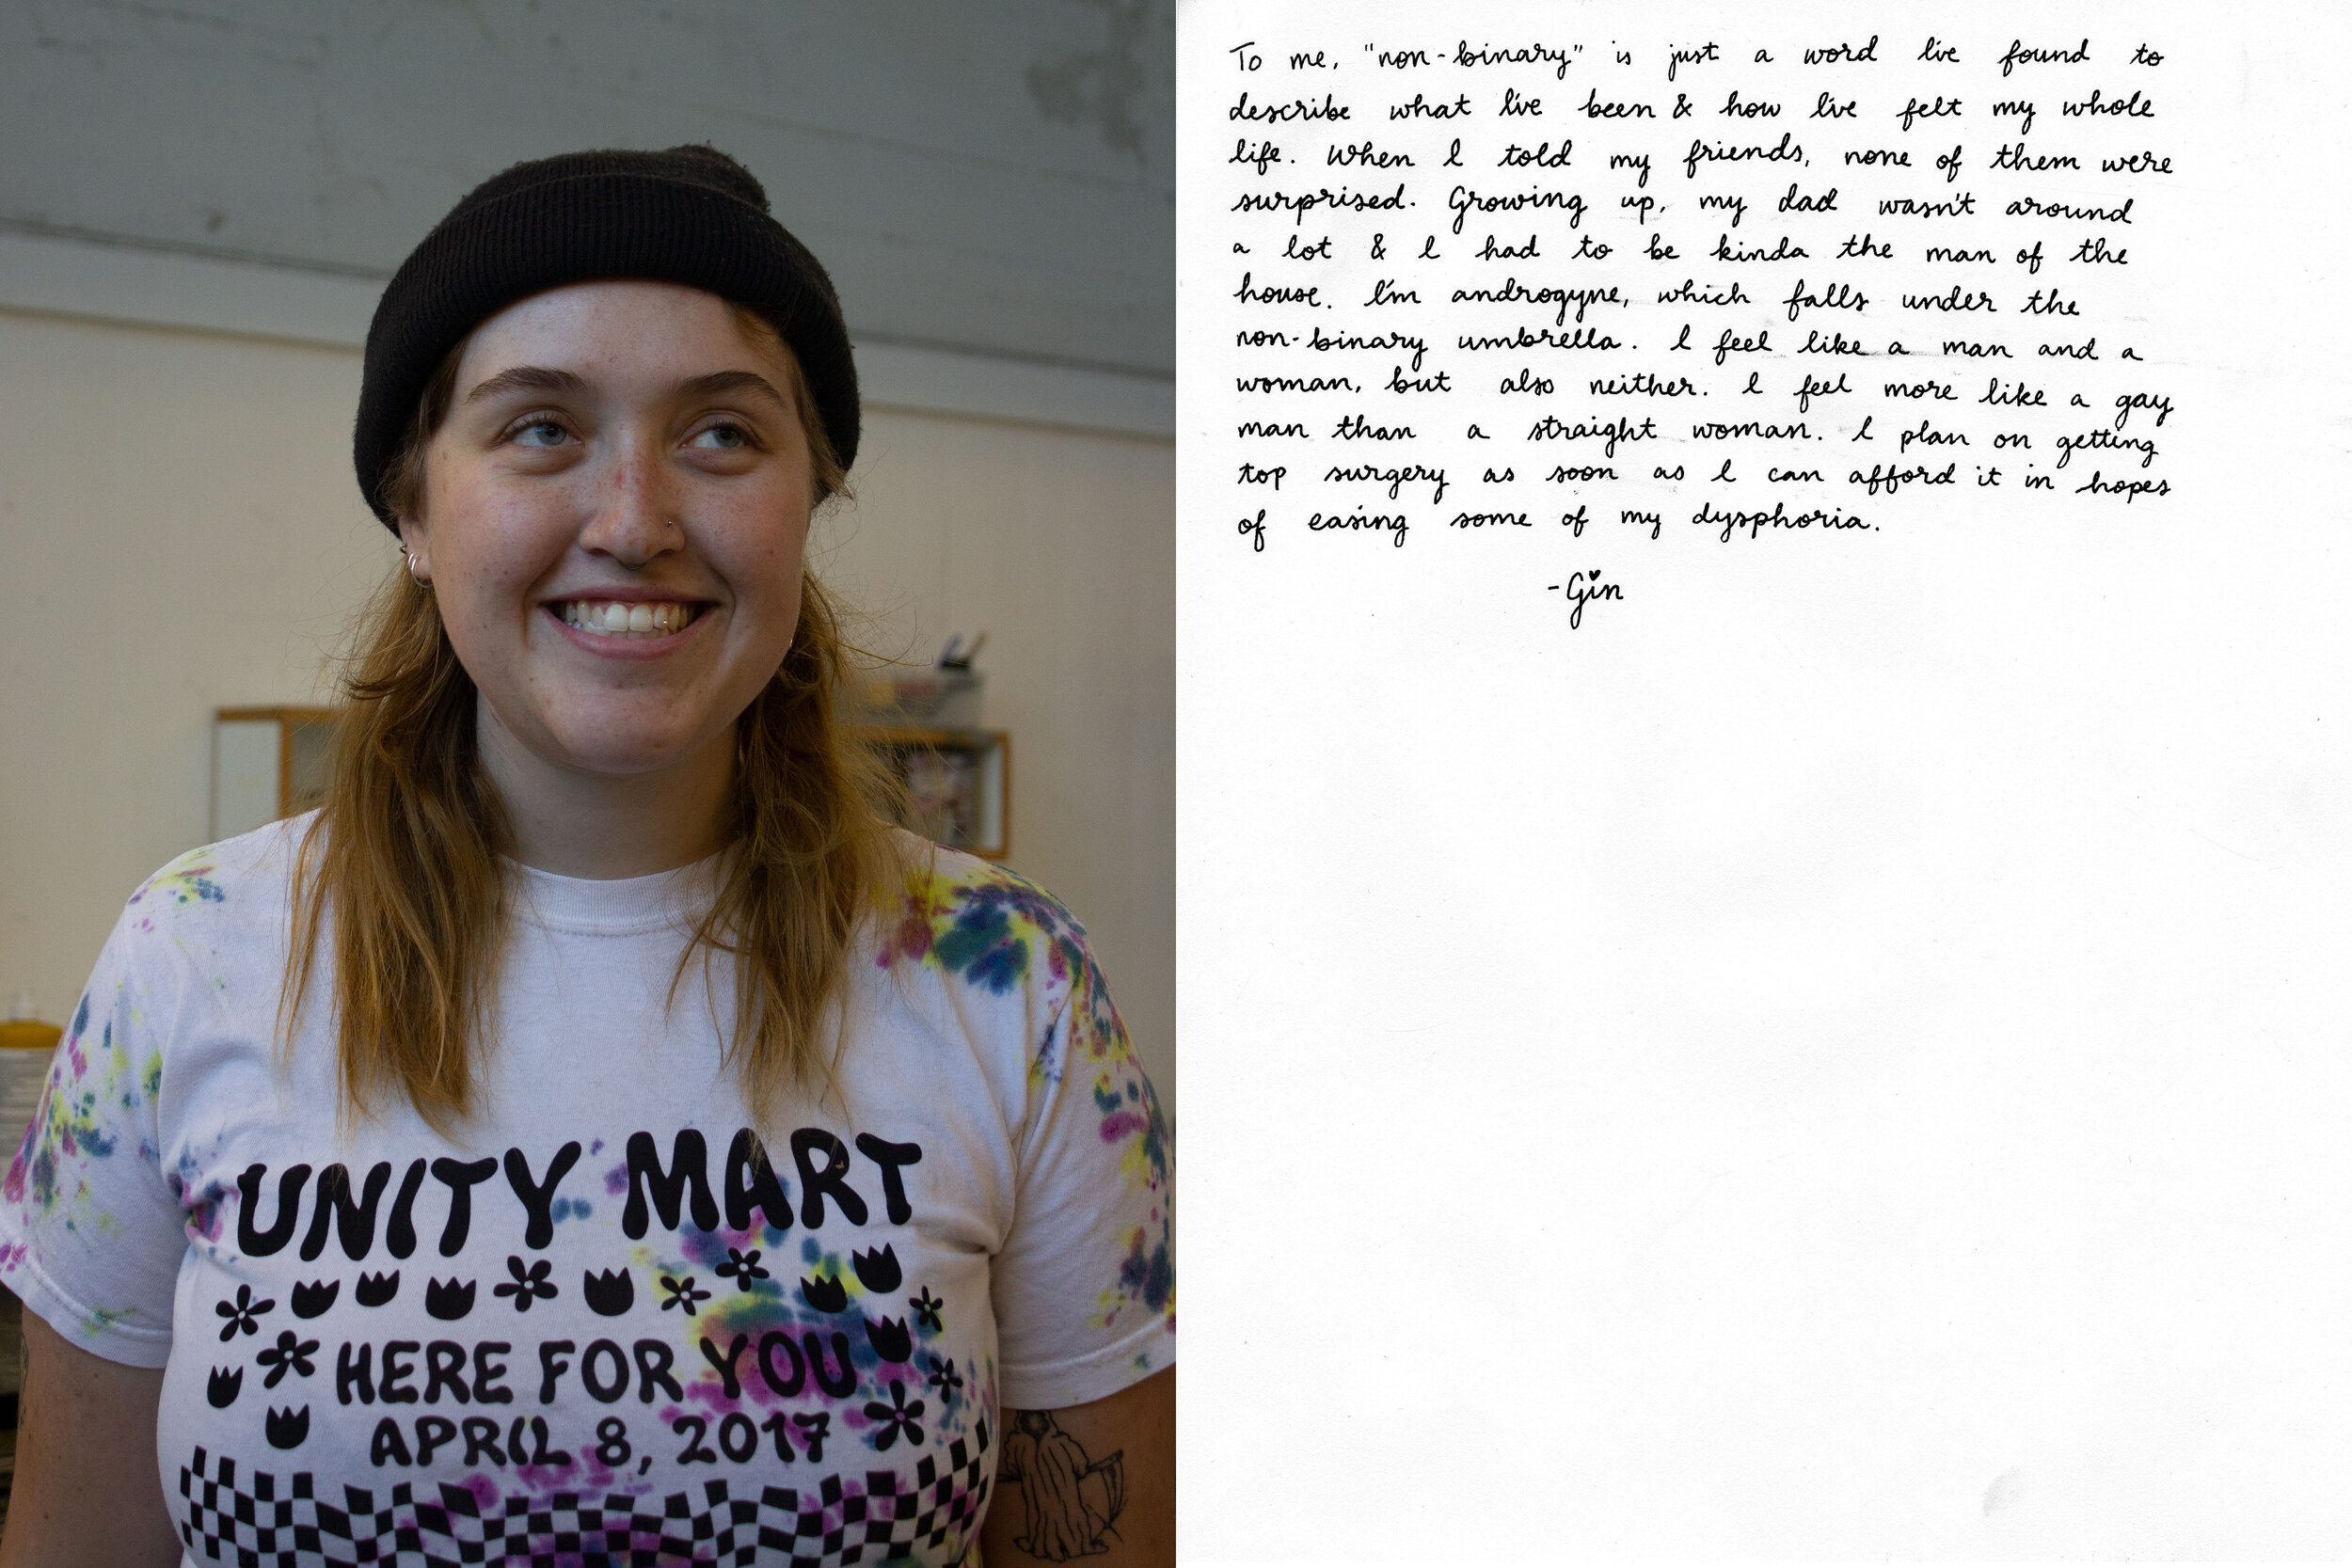 UNITY MART
HERE FOR YOU
APRIL 8, 2017
To me, "non-binary" is just a word I've found to
describe what I've been & how I've felt my whole
life. When I told my friends, none of them were
surprised. Growing up, my dad wasn't around
a lot & I had to be kinda the man of the
house. I'm androgyne, which falls under the
non-binary umbrella. I feel like a man and a
woman, but also neither. I feel more like a gay
man than a straight woman. I plan on getting
top surgery as soon as I can afford it in hopes
of easing some of my dysphoria.
-Gin